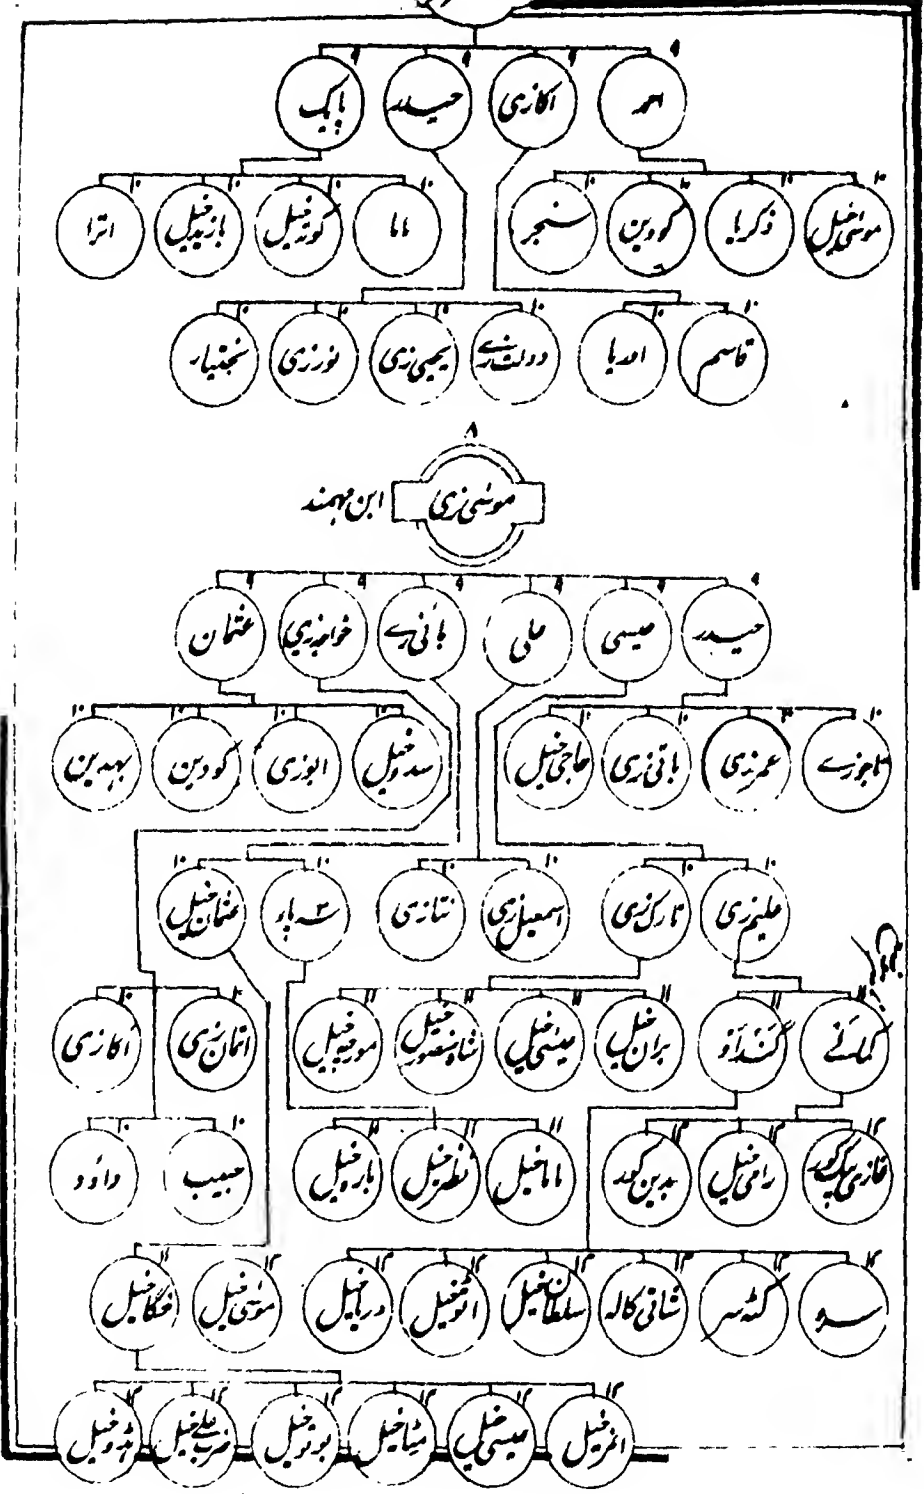 احمد اکازی حیدر بابک
موسیٰ خیل ذکریا کودین سنجر ماما کوتہ خیل بازید خیل اترا
قاسم احدیا دولت زے یحییٰ زی نورزی بختیار
۸
موسیٰ زی ابن مہمند
حیدر عیسی علی بائی زے خواجہ زی عثمان
تاجو زے عمر زی باقی زی حاجی خیل سدو خیل ابوزی کودین بہدین
علیم زی تارک زی اسمعیل زی نتازی سہ پاو عثمان خیل
کمالے گنداؤ بران خیل عیسیٰ خیل شاہ منصور خیل موجہ خیل اتمان زی اکازی
غازی بیگ کور رامی خیل بدین کور ماما خیل نظر خیل بارو خیل حبیب داؤد
سرہ کٹہ سر شاتی کالہ سلطان خیل اتو خیل دریا خیل موسٰی خیل منگا خیل
انمر خیل عیسیٰ خیل میٹا خیل بوتو خیل ضرب علے خیل ہندو خیل